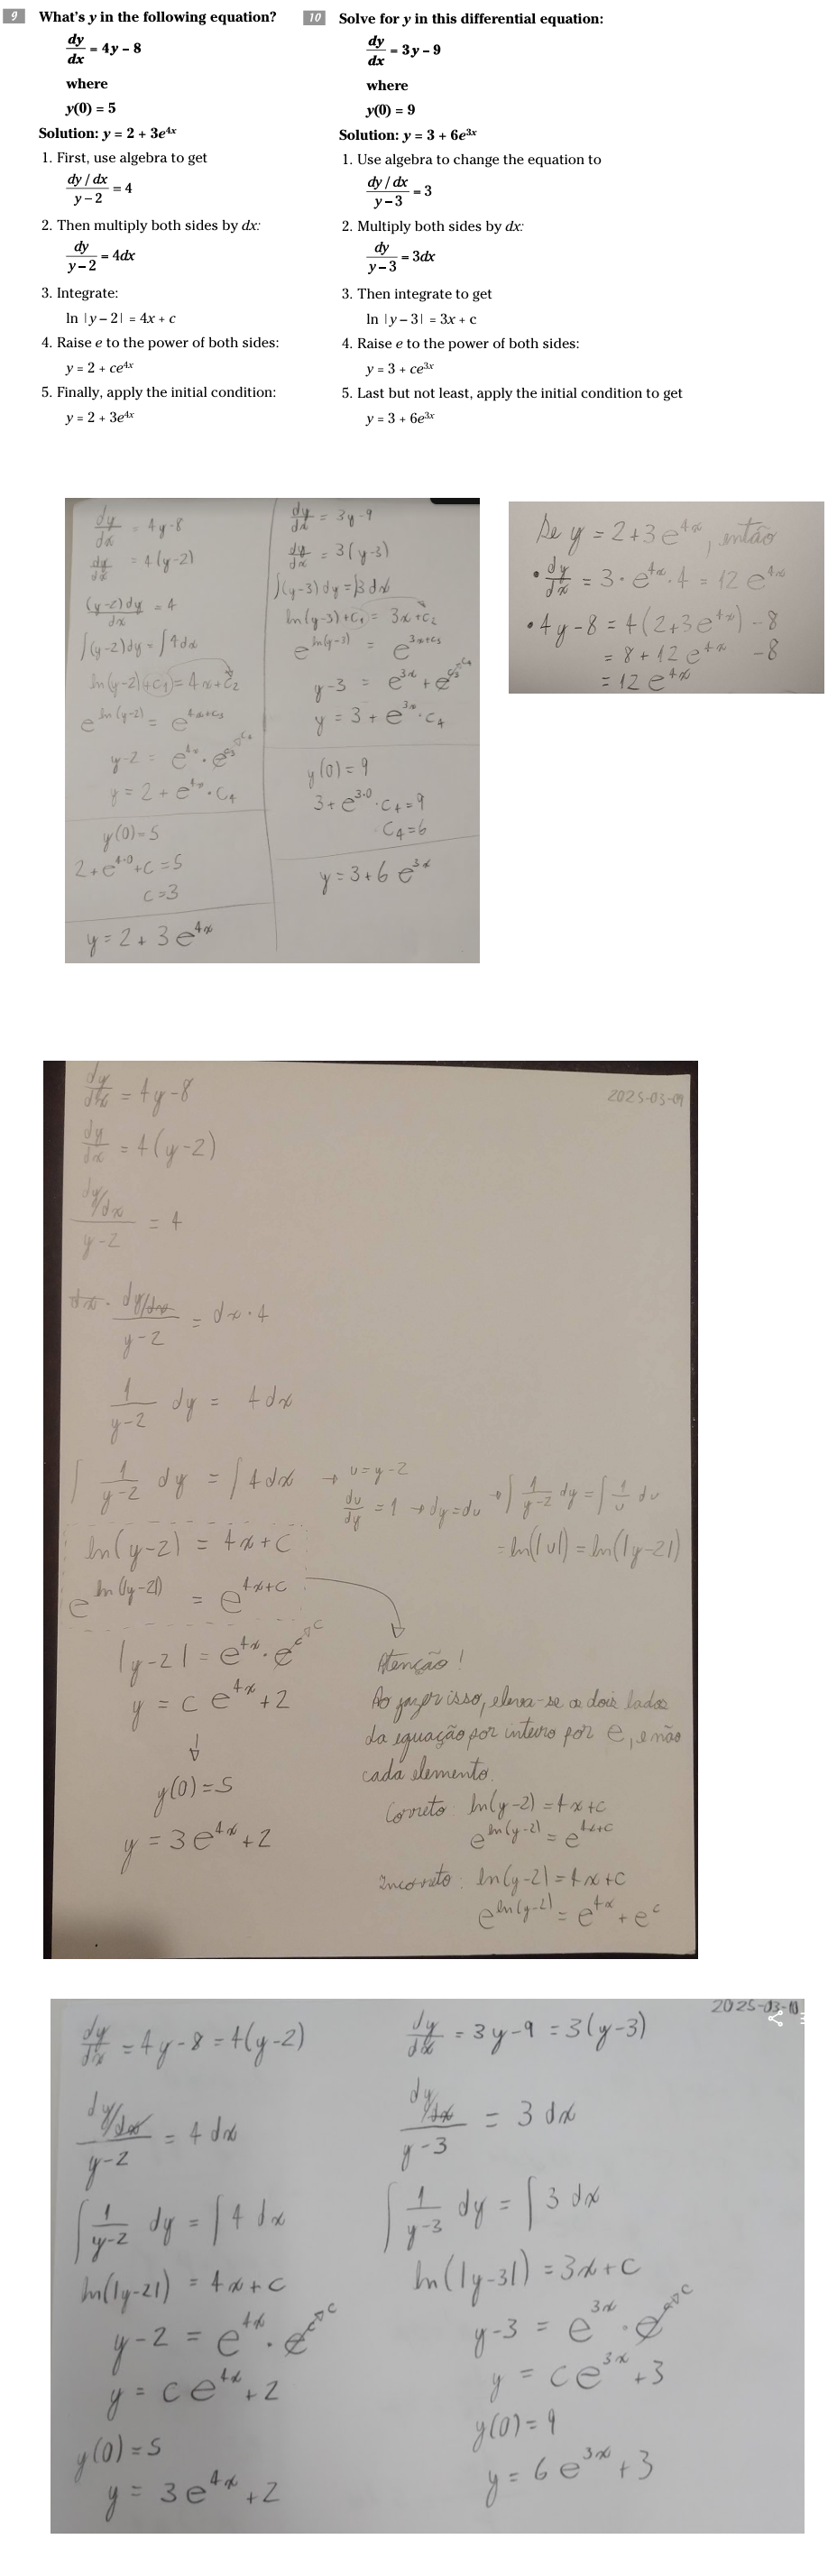 9 What's y in the following equation?
dy/dx = 4y – 8
where
y(0) = 5
Solution: y = 2 + 3e^4x
1. First, use algebra to get
(dy / dx)/(y – 2) = 4
2. Then multiply both sides by dx:
dy/(y – 2) = 4dx
3. Integrate:
ln |y – 2| = 4x + c
4. Raise e to the power of both sides:
y = 2 + ce^4x
5. Finally, apply the initial condition:
y = 2 + 3e^4x
10 Solve for y in this differential equation:
dy/dx = 3y – 9
where
y(0) = 9
Solution: y = 3 + 6e^3x
1. Use algebra to change the equation to
(dy / dx)/(y – 3) = 3
2. Multiply both sides by dx:
dy/(y – 3) = 3dx
3. Then integrate to get
ln |y – 3| = 3x + c
4. Raise e to the power of both sides:
y = 3 + ce^3x
5. Last but not least, apply the initial condition to get
y = 3 + 6e^3x
dy/dx = 4y-8
dy/dx = 4(y-2)
(y-2)dy/dx = 4
∫(y-2)dy = ∫4dx
ln(y-2)+c₁ = 4x+c₂
e^ln(y-2) = e^4x+c₃
y-2 = e^4x · e^c₃ c₄
y = 2 + e^4x · c₄
y(0)=5
2+e^4·0+c=5
c=3
y = 2 + 3e^4x
dy/dx = 3y-9
dy/dx = 3(y-3)
∫(y-3)dy = ∫3dx
ln(y-3)+c₁ = 3x+c₂
e^ln(y-3) = e^3x+c₃
y-3 = e^3x + e^c₃ c₄
y = 3 + e^3x · c₄
y(0) = 9
3+e^3·0 · c₄=9
c₄=6
y = 3+6 e^3x
Se y = 2+3e^4x, então
• dy/dx = 3 · e^4x · 4 = 12 e^4x
• 4y-8 = 4(2+3e^4x) -8
= 8+12e^4x -8
= 12 e^4x
2025-03-09
dy/dx = 4y-8
dy/dx = 4(y-2)
(dy/dx)/(y-2) = 4
dx · (dy/dx)/(y-2) = dx · 4
1/(y-2) dy = 4dx
∫ 1/(y-2) dy = ∫4dx → u=y-2
du/dy = 1 → dy=du → ∫ 1/(y-2) dy = ∫ 1/u du
= ln(|u|) = ln(|y-2|)
ln(y-2) = 4x+c
e^ln(|y-2|) = e^4x+c
|y-2| = e^4x · e^c c
y = c e^4x + 2
y(0)=5
y = 3e^4x+2
Atenção!
Ao fazer isso, eleva-se os dois lados
da equação por inteiro por e, e não
cada elemento.
Correto: ln(y-2) = 4x+c
e^ln(y-2) = e^4x+c
Incorreto: ln(y-2) = 4x+c
e^ln(y-2) = e^4x + e^c
2025-03-10
dy/dx = 4y-8 = 4(y-2)
(dy/dx)/(y-2) = 4 dx
∫ 1/(y-2) dy = ∫ 4 dx
ln(|y-2|) = 4x+c
y-2 = e^4x · e^c c
y = ce^4x+2
y(0)=5
y = 3e^4x+2
dy/dx = 3y-9 = 3(y-3)
(dy/dx)/(y-3) = 3 dx
∫ 1/(y-3) dy = ∫ 3 dx
ln(|y-3|) = 3x+c
y-3 = e^3x · e^c c
y = ce^3x+3
y(0)=9
y = 6e^3x+3